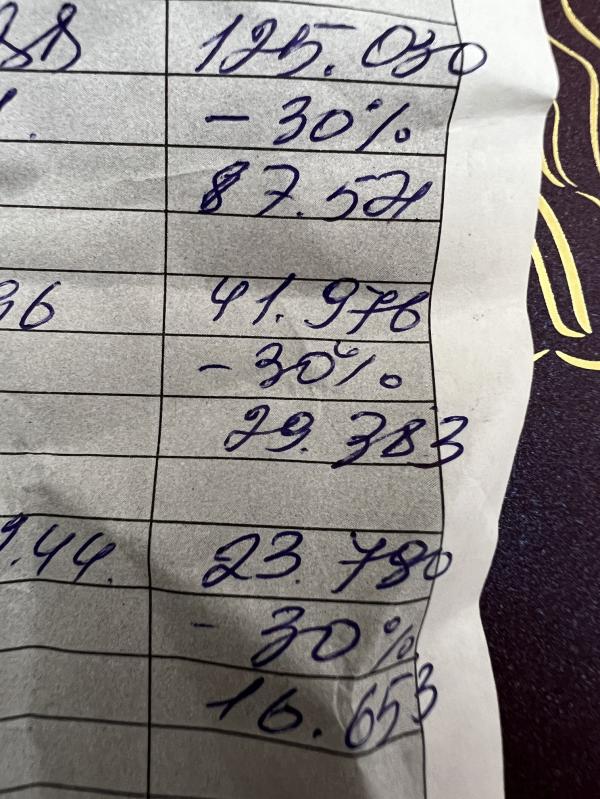 88 125.030
- 30%
87.521
36 41.976
- 30%
29.383
9.44. 23.780
- 30%
16.653